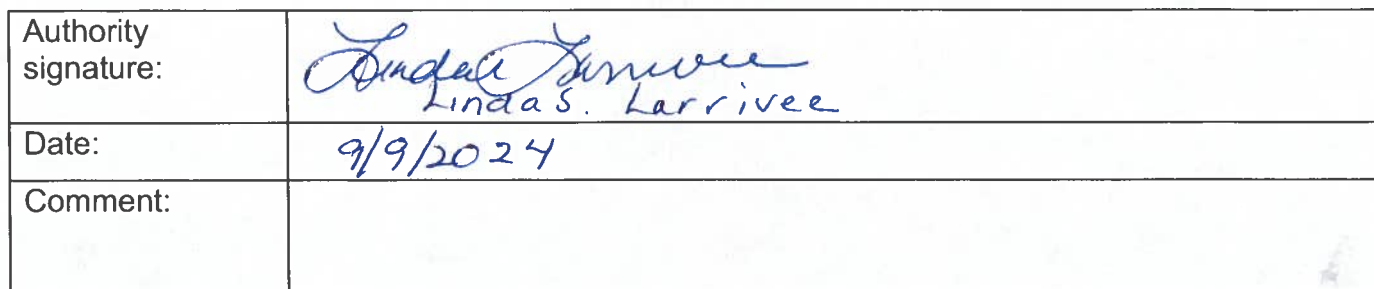 Authority
signature:
Linda S. Larrivee
Linda S. Larrivee
Date:
9/9/2024
Comment: